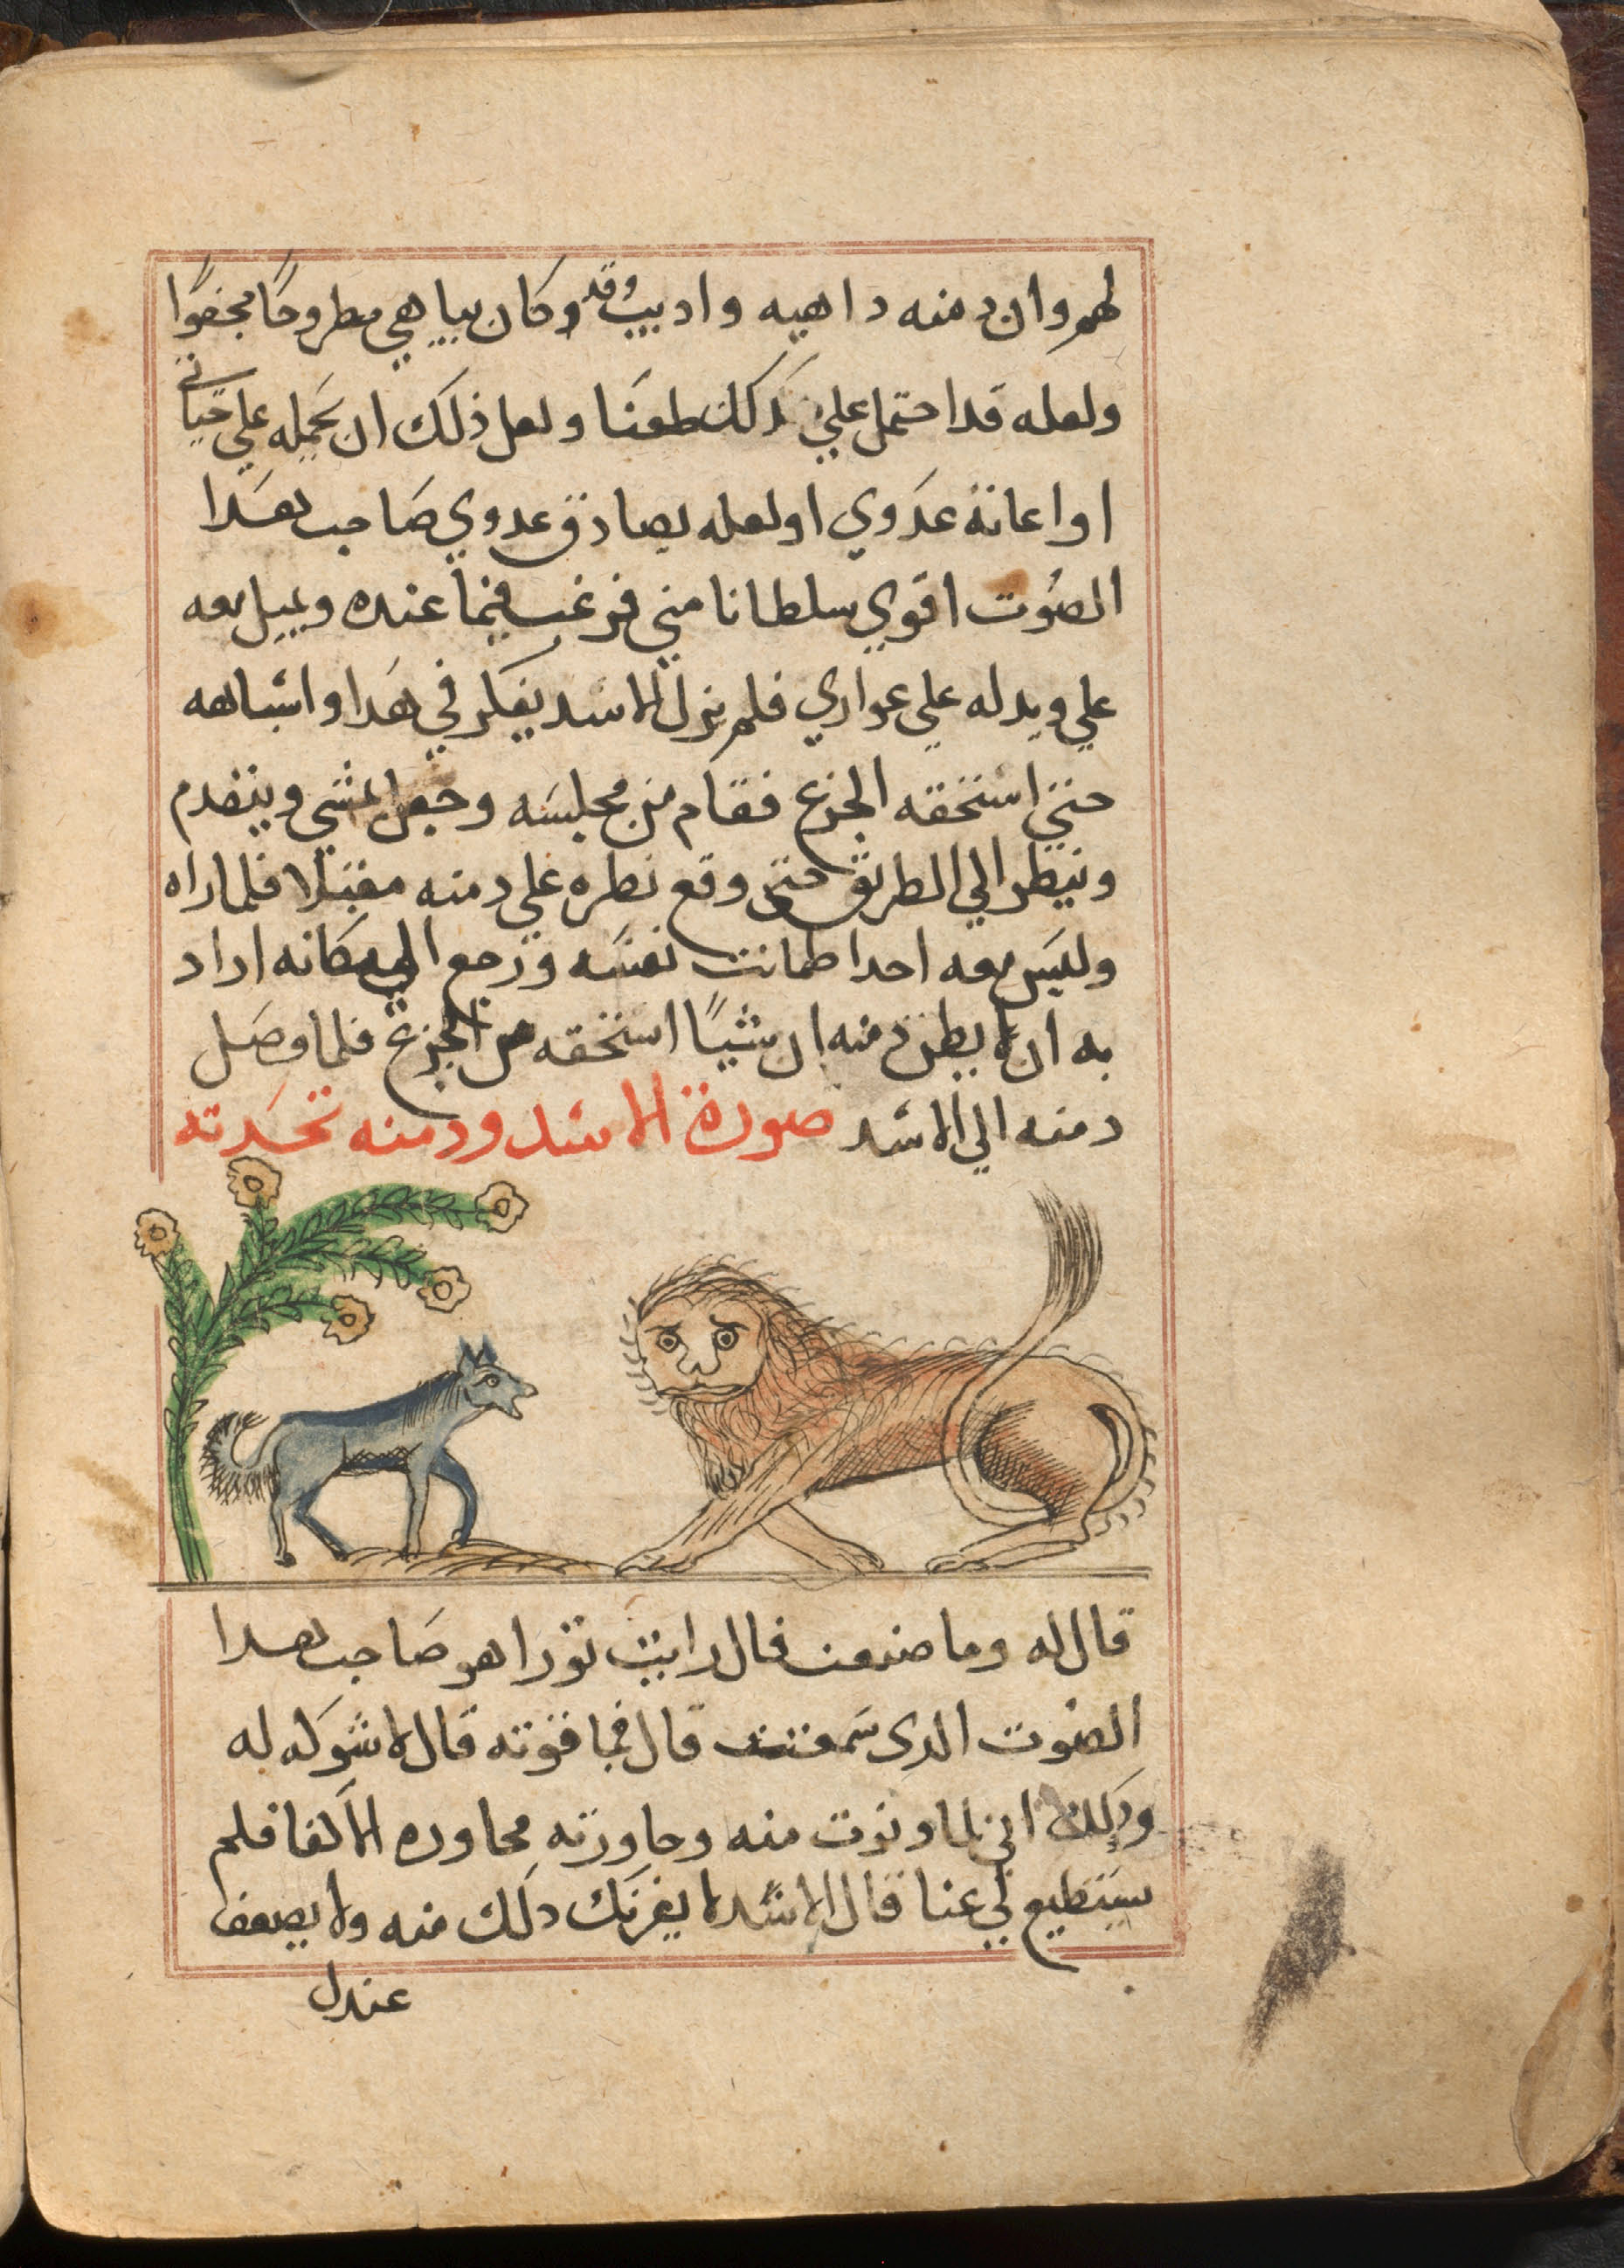 لهم وان دمنه داهيه واديب وقد وكان ببابي مطروحًا مجفوًا
ولعله قد احتمل علي بذلك طعنا ولعل ذلك ان يحمله علي خيانتي
او اعانة عدوي او لعله يصادق عدوي صاحب هدا
الصوت اقوي سلطانا مني فرغب فيما عنده ويميل معه
علي ويدله علي عواري فلم يزل الاسد يفكر في هدا واشباهه
حتي استخفه الجزع فقام من مجلسه وجعل يمشي ويتقدم
وينظر الي الطريق حتى وقع نظره علي دمنه مقبلا فلما راه
وليس معه احد اطمانت نفسه ورجع الي مكانه اراد
به ان لا يظن دمنه ان شيًا استخفه من الجزع فلما وصل
دمنه الي الاسد صورة الاسد ودمنه تحدته
قال له وما صنعت قال رايت تورا هو صاحب هدا
الصوت الدى سمعت قال فما قوته قال لا شوكه له
ودلك اني لما دنوت منه وحاورته محاوره الاكفا فلم
يستطيع لي عنا قال الاسد لا يغرنك دلك منه ولا يضعف
عندك